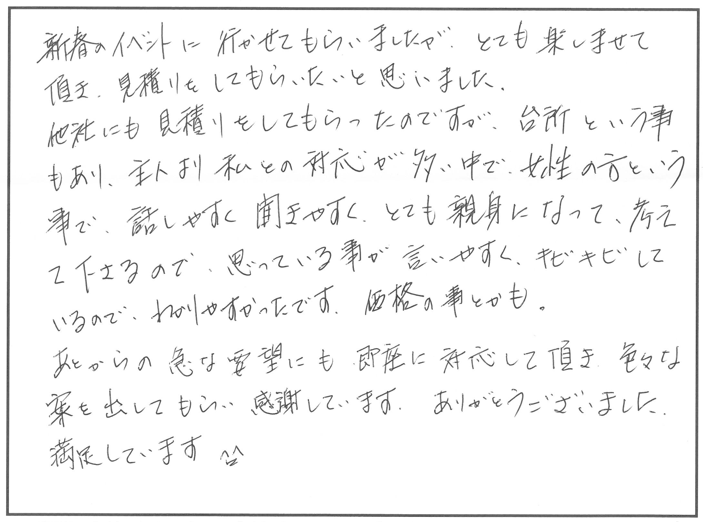 新春のイベントに行かせてもらいましたが、とても楽しませて
頂き、見積りをしてもらいたいと思いました。
他社にも見積りをしてもらったのですが、台所という事
もあり、主人より私との対応が多い中で、女性の方という
事で、話しやすく聞きやすく、とても親身になって、考え
て下さるので、思っている事が言いやすく、キビキビして
いるので、わかりやすかったです。価格の事とかも。
あとからの急な要望にも即座に対応して頂き、色々な
案を出してもらい感謝しています。ありがとうございました。
満足しています ^^